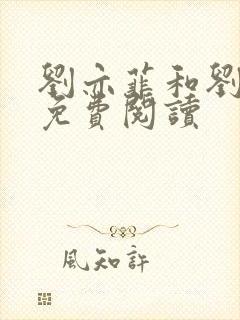 劉亦菲和劉
免費閱讀
風知許